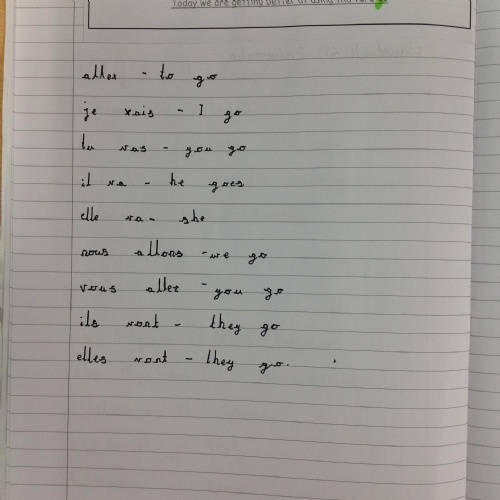 Today we are getting better at using the
aller - to go
je vais - I go
tu vas - you go
il va - he goes
elle va - she
nous allons - we go
vous allez - you go
ils vont - they go
elles vont - they go.